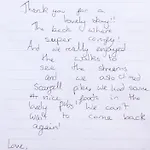 Thank you for a
lovely stay!!
The beds where
super comfy!
And we really enjoyed
the walks to
see the streams
and we also
Scarfell pike. We had some
nice foods in the
lovely pubs! We can't
wait to come back
again!
Love,